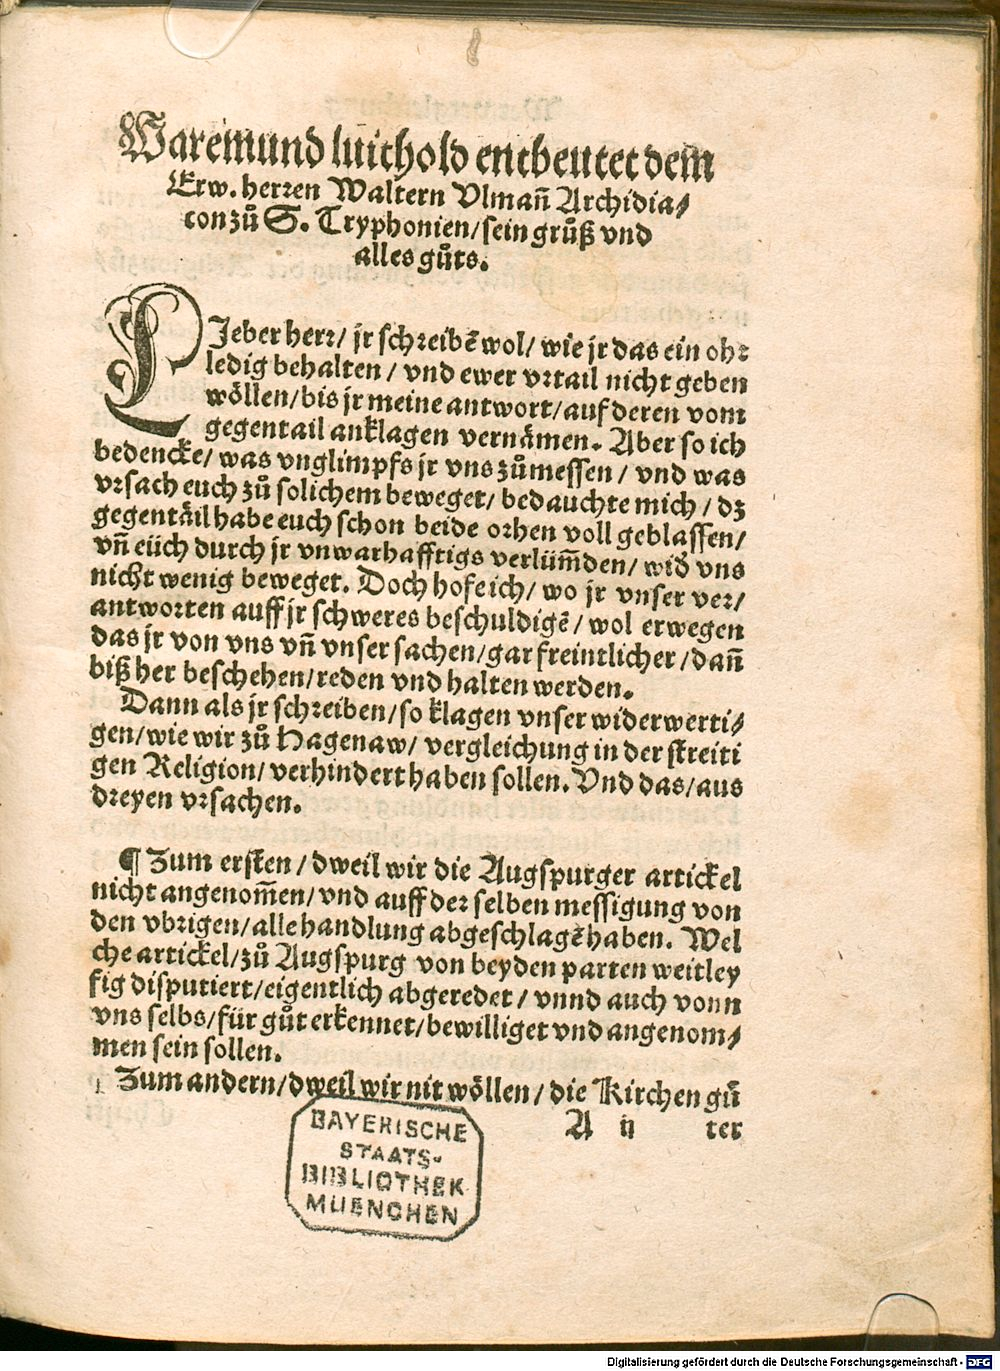 Waremund luithold entbeutet dem
Erw. herren Waltern Vlman̄ Archidia/
con zů S. Tryphonien/ sein grůß vnd
alles gůts.
LJeber herr/ jr schreibē wol/ wie jr das ein ohr
ledig behalten/ vnd ewer vrtail nicht geben
wöllen/ bis jr meine antwort/ auf deren vom
gegentail anklagen vernämen. Aber so ich
bedencke/ was vnglimpfs jr vns zůmessen/ vnd was
vrsach euch zů solichem beweget/ bedauchte mich/ dz
gegentäil habe euch schon beide orhen voll geblassen/
vn̄ eüch durch jr vnwarhafftigs verlüm̄den/ wid̄ vns
nicht wenig beweget. Doch hofe ich/ wo jr vnser ver/
antworten auff jr schweres beschuldigē/ wol erwegen
das jr von vns vn̄ vnser sachen/ gar freintlicher/ dan̄
biß her beschehen/ reden vnd halten werden.
Dann als jr schreiben/ so klagen vnser widerwerti/
gen/ wie wir zů Hagenaw/ vergleichung in der streiti
gen Religion/ verhindert haben sollen. Vnd das/ aus
dreyen vrsachen.
¶ Zum ersten/ dweil wir die Augspurger artickel
nicht angenom̄en/ vnd auff der selben messigung von
den vbrigen/ alle handlung abgeschlagē haben. Wel
che artickel/ zů Augspurg von beyden parten weitley
fig disputiert/ eigentlich abgeredet/ vnnd auch vonn
vns selbs/ für gůt erkennet/ bewilliget vnd angenom/
men sein sollen.
¶ Zum andern/ dweil wir nit wöllen/ die Kirchen gů
A ij ter
BAYERISCHE
STAATS-
BIBLIOTHEK
MUENCHEN
Digitalisierung gefördert durch die Deutsche Forschungsgemeinschaft - DFG